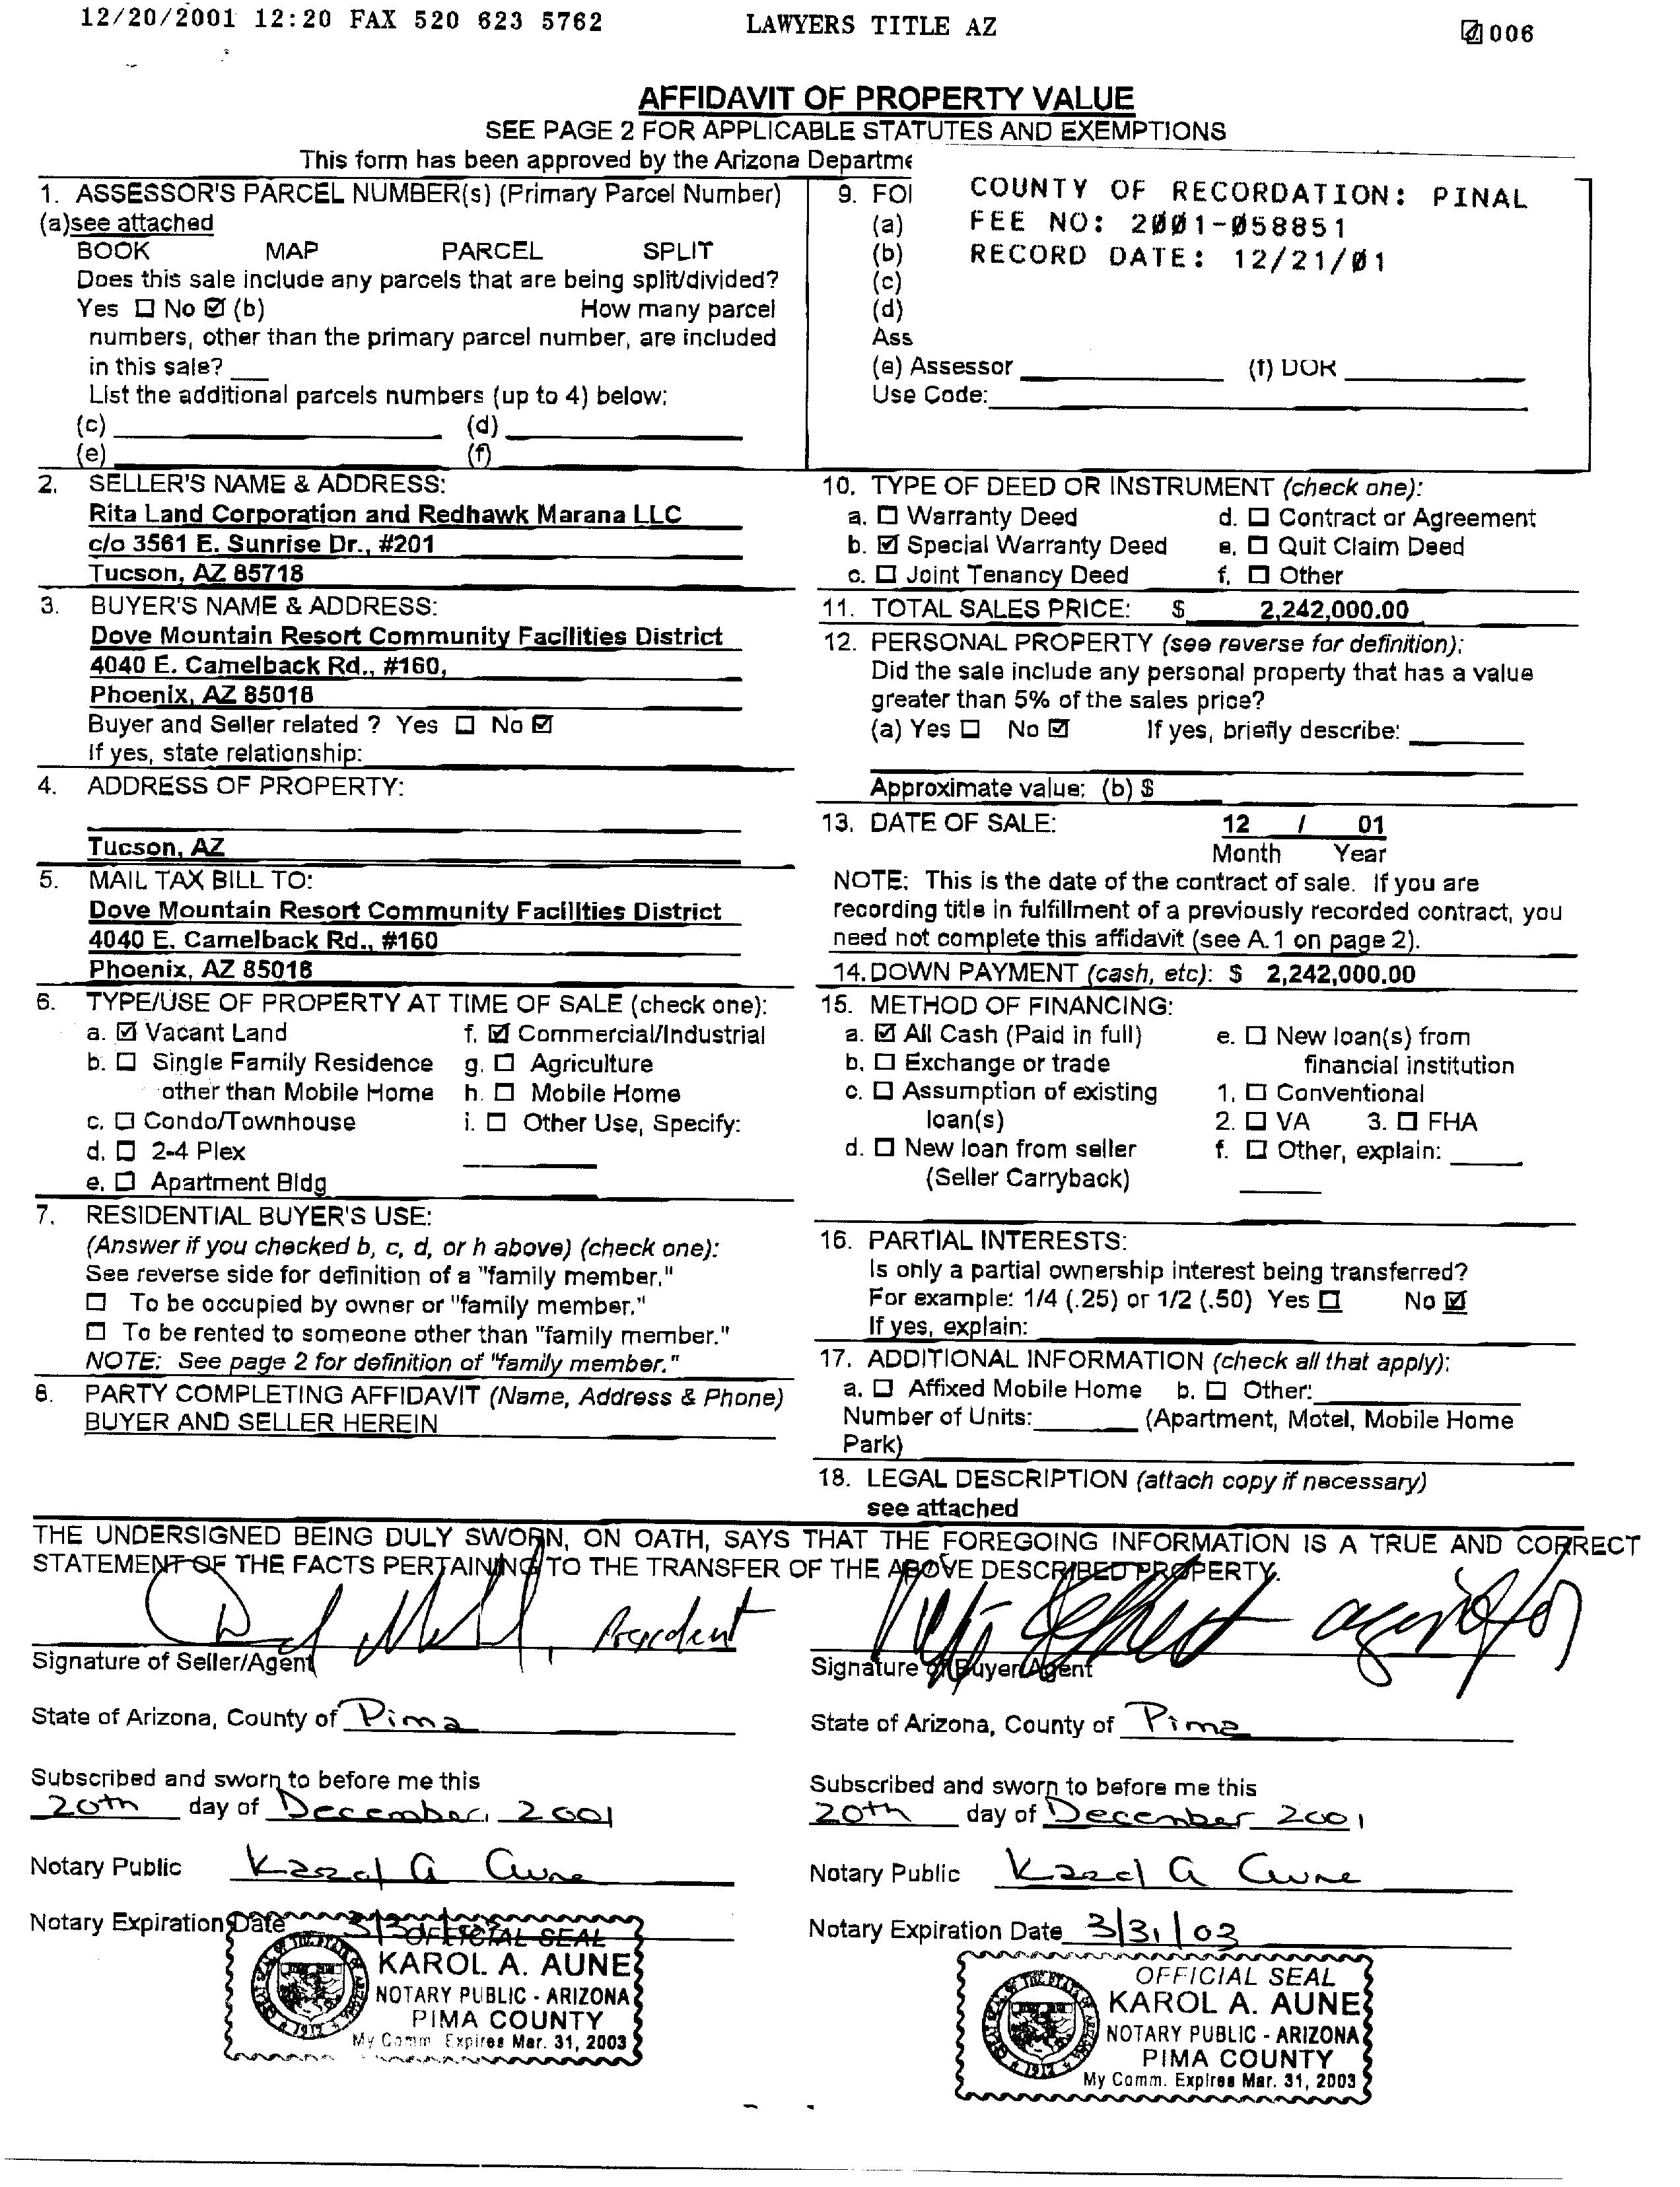 12/20/2001 12:20 FAX 520 623 5762 LAWYERS TITLE AZ 006
AFFIDAVIT OF PROPERTY VALUE
SEE PAGE 2 FOR APPLICABLE STATUTES AND EXEMPTIONS
This form has been approved by the Arizona Departme
1. ASSESSOR'S PARCEL NUMBER(s) (Primary Parcel Number)
(a)see attached
BOOK MAP PARCEL SPLIT
Does this sale include any parcels that are being split/divided?
Yes ☐ No ☑ (b) How many parcel
numbers, other than the primary parcel number, are included
in this sale? ___
List the additional parcels numbers (up to 4) below:
(c) ____ (d) ____
(e) ____ (f) ____
2. SELLER'S NAME & ADDRESS:
Rita Land Corporation and Redhawk Marana LLC
c/o 3561 E. Sunrise Dr., #201
Tucson, AZ 85718
3. BUYER'S NAME & ADDRESS:
Dove Mountain Resort Community Facilities District
4040 E. Camelback Rd., #160,
Phoenix, AZ 85018
Buyer and Seller related ? Yes ☐ No ☑
If yes, state relationship:
4. ADDRESS OF PROPERTY:
Tucson, AZ
5. MAIL TAX BILL TO:
Dove Mountain Resort Community Facilities District
4040 E. Camelback Rd., #160
Phoenix, AZ 85018
6. TYPE/USE OF PROPERTY AT TIME OF SALE (check one):
a. ☑ Vacant Land f. ☑ Commercial/Industrial
b. ☐ Single Family Residence g. ☐ Agriculture
other than Mobile Home h. ☐ Mobile Home
c. ☐ Condo/Townhouse i. ☐ Other Use, Specify:
d. ☐ 2-4 Plex
e. ☐ Apartment Bldg
7. RESIDENTIAL BUYER'S USE:
(Answer if you checked b, c, d, or h above) (check one):
See reverse side for definition of a "family member."
☐ To be occupied by owner or "family member."
☐ To be rented to someone other than "family member."
NOTE: See page 2 for definition of "family member."
8. PARTY COMPLETING AFFIDAVIT (Name, Address & Phone)
BUYER AND SELLER HEREIN
9. FOR
COUNTY OF RECORDATION: PINAL
(a) FEE NO: 2001-058851
(b) RECORD DATE: 12/21/01
(c)
(d)
Ass
(e) Assessor ____ (f) DOR ____
Use Code: ____
10. TYPE OF DEED OR INSTRUMENT (check one):
a. ☐ Warranty Deed d. ☐ Contract or Agreement
b. ☑ Special Warranty Deed e. ☐ Quit Claim Deed
c. ☐ Joint Tenancy Deed f. ☐ Other
11. TOTAL SALES PRICE: $ 2,242,000.00
12. PERSONAL PROPERTY (see reverse for definition):
Did the sale include any personal property that has a value
greater than 5% of the sales price?
(a) Yes ☐ No ☑ If yes, briefly describe: ____
Approximate value: (b) $
13. DATE OF SALE: 12 / 01
Month Year
NOTE: This is the date of the contract of sale. If you are
recording title in fulfillment of a previously recorded contract, you
need not complete this affidavit (see A.1 on page 2).
14. DOWN PAYMENT (cash, etc): $ 2,242,000.00
15. METHOD OF FINANCING:
a. ☑ All Cash (Paid in full) e. ☐ New loan(s) from
b. ☐ Exchange or trade financial institution
c. ☐ Assumption of existing 1. ☐ Conventional
loan(s) 2. ☐ VA 3. ☐ FHA
d. ☐ New loan from seller f. ☐ Other, explain: ____
(Seller Carryback)
16. PARTIAL INTERESTS:
Is only a partial ownership interest being transferred?
For example: 1/4 (.25) or 1/2 (.50) Yes ☐ No ☑
If yes, explain:
17. ADDITIONAL INFORMATION (check all that apply):
a. ☐ Affixed Mobile Home b. ☐ Other: ____
Number of Units: ____ (Apartment, Motel, Mobile Home
Park)
18. LEGAL DESCRIPTION (attach copy if necessary)
see attached
THE UNDERSIGNED BEING DULY SWORN, ON OATH, SAYS THAT THE FOREGOING INFORMATION IS A TRUE AND CORRECT
STATEMENT OF THE FACTS PERTAINING TO THE TRANSFER OF THE ABOVE DESCRIBED PROPERTY.
President
Signature of Seller/Agent
State of Arizona, County of Pima
Subscribed and sworn to before me this
20th day of December, 2001
Notary Public Karol A Aune
Notary Expiration Date
OFFICIAL SEAL
KAROL A. AUNE
NOTARY PUBLIC - ARIZONA
PIMA COUNTY
My Comm. Expires Mar. 31, 2003
agent for
Signature of Buyer/Agent
State of Arizona, County of Pima
Subscribed and sworn to before me this
20th day of December 2001
Notary Public Karol A Aune
Notary Expiration Date 3/31/03
OFFICIAL SEAL
KAROL A. AUNE
NOTARY PUBLIC - ARIZONA
PIMA COUNTY
My Comm. Expires Mar. 31, 2003